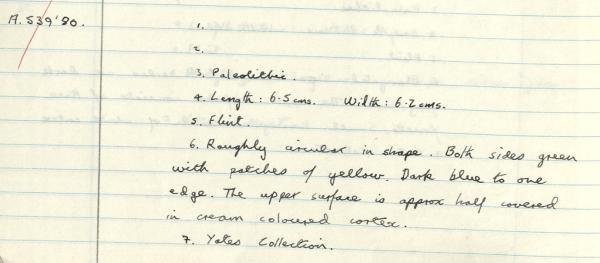 A.539'80.
1.
2.
3. Paleolithic.
4. Length: 6.5cms. Width: 6.2cms.
5. Flint.
6. Roughly circular in shape. Both sides green
with patches of yellow. Dark blue to one
edge. The upper surface is approx half covered
in cream coloured cortex.
7. Yates Collection.